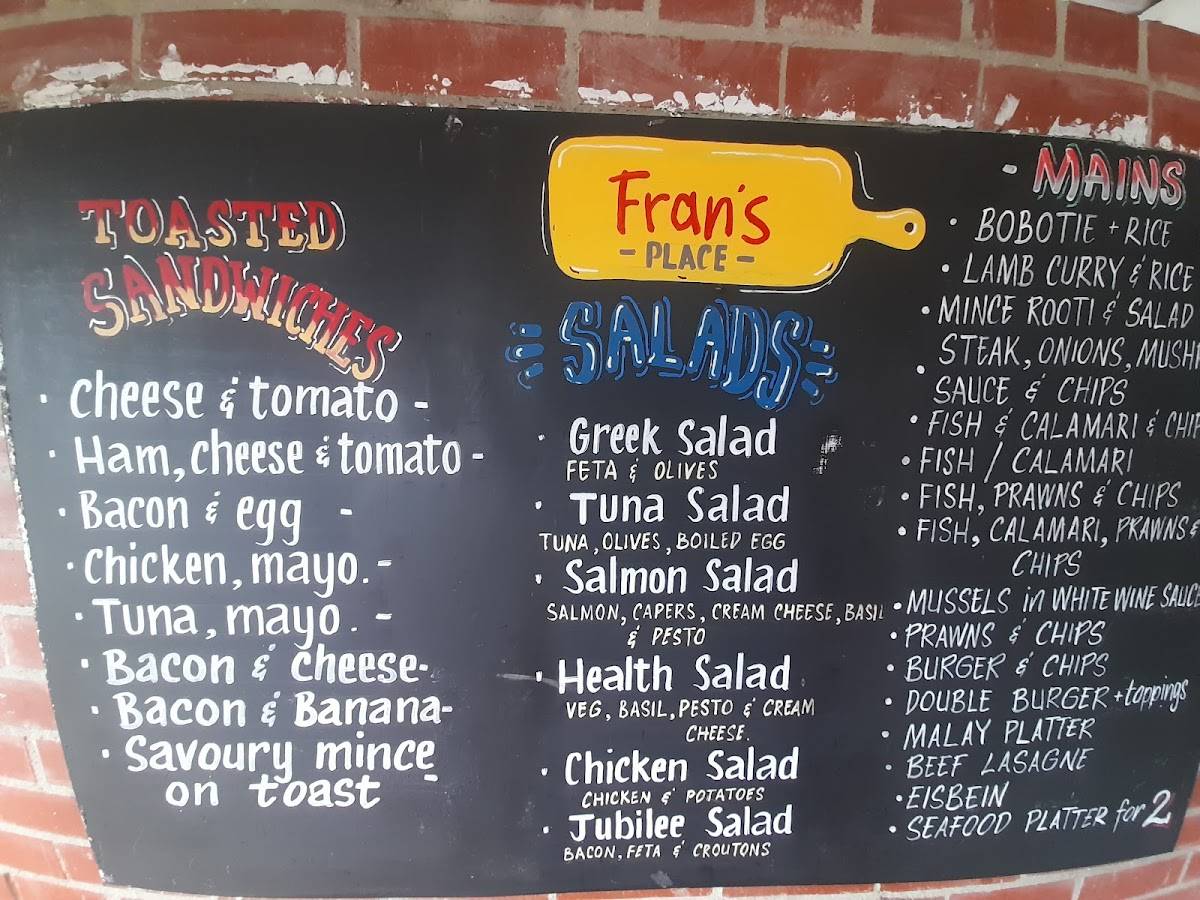 TOASTED
SANDWICHES
· Cheese & tomato -
· Ham, cheese & tomato -
· Bacon & egg -
· Chicken, mayo. -
· Tuna, mayo. -
· Bacon & cheese-
· Bacon & Banana-
· Savoury mince
on toast -
Fran's
- PLACE -
SALADS
· Greek Salad
FETA & OLIVES
· Tuna Salad
TUNA, OLIVES, BOILED EGG
· Salmon Salad
SALMON, CAPERS, CREAM CHEESE, BASIL
& PESTO
· Health Salad
VEG, BASIL, PESTO & CREAM
CHEESE.
· Chicken Salad
CHICKEN & POTATOES
· Jubilee Salad
BACON, FETA & CROUTONS
- MAINS
· BOBOTIE + RICE
· LAMB CURRY & RICE
· MINCE ROOTI & SALAD
· STEAK, ONIONS, MUSH
SAUCE & CHIPS
· FISH & CALAMARI & CHIP
· FISH / CALAMARI
· FISH, PRAWNS & CHIPS
· FISH, CALAMARI, PRAWNS &
CHIPS
· MUSSELS in WHITE WINE SAUCE
· PRAWNS & CHIPS
· BURGER & CHIPS
· DOUBLE BURGER + toppings
· MALAY PLATTER
· BEEF LASAGNE
· EISBEIN
· SEAFOOD PLATTER for 2